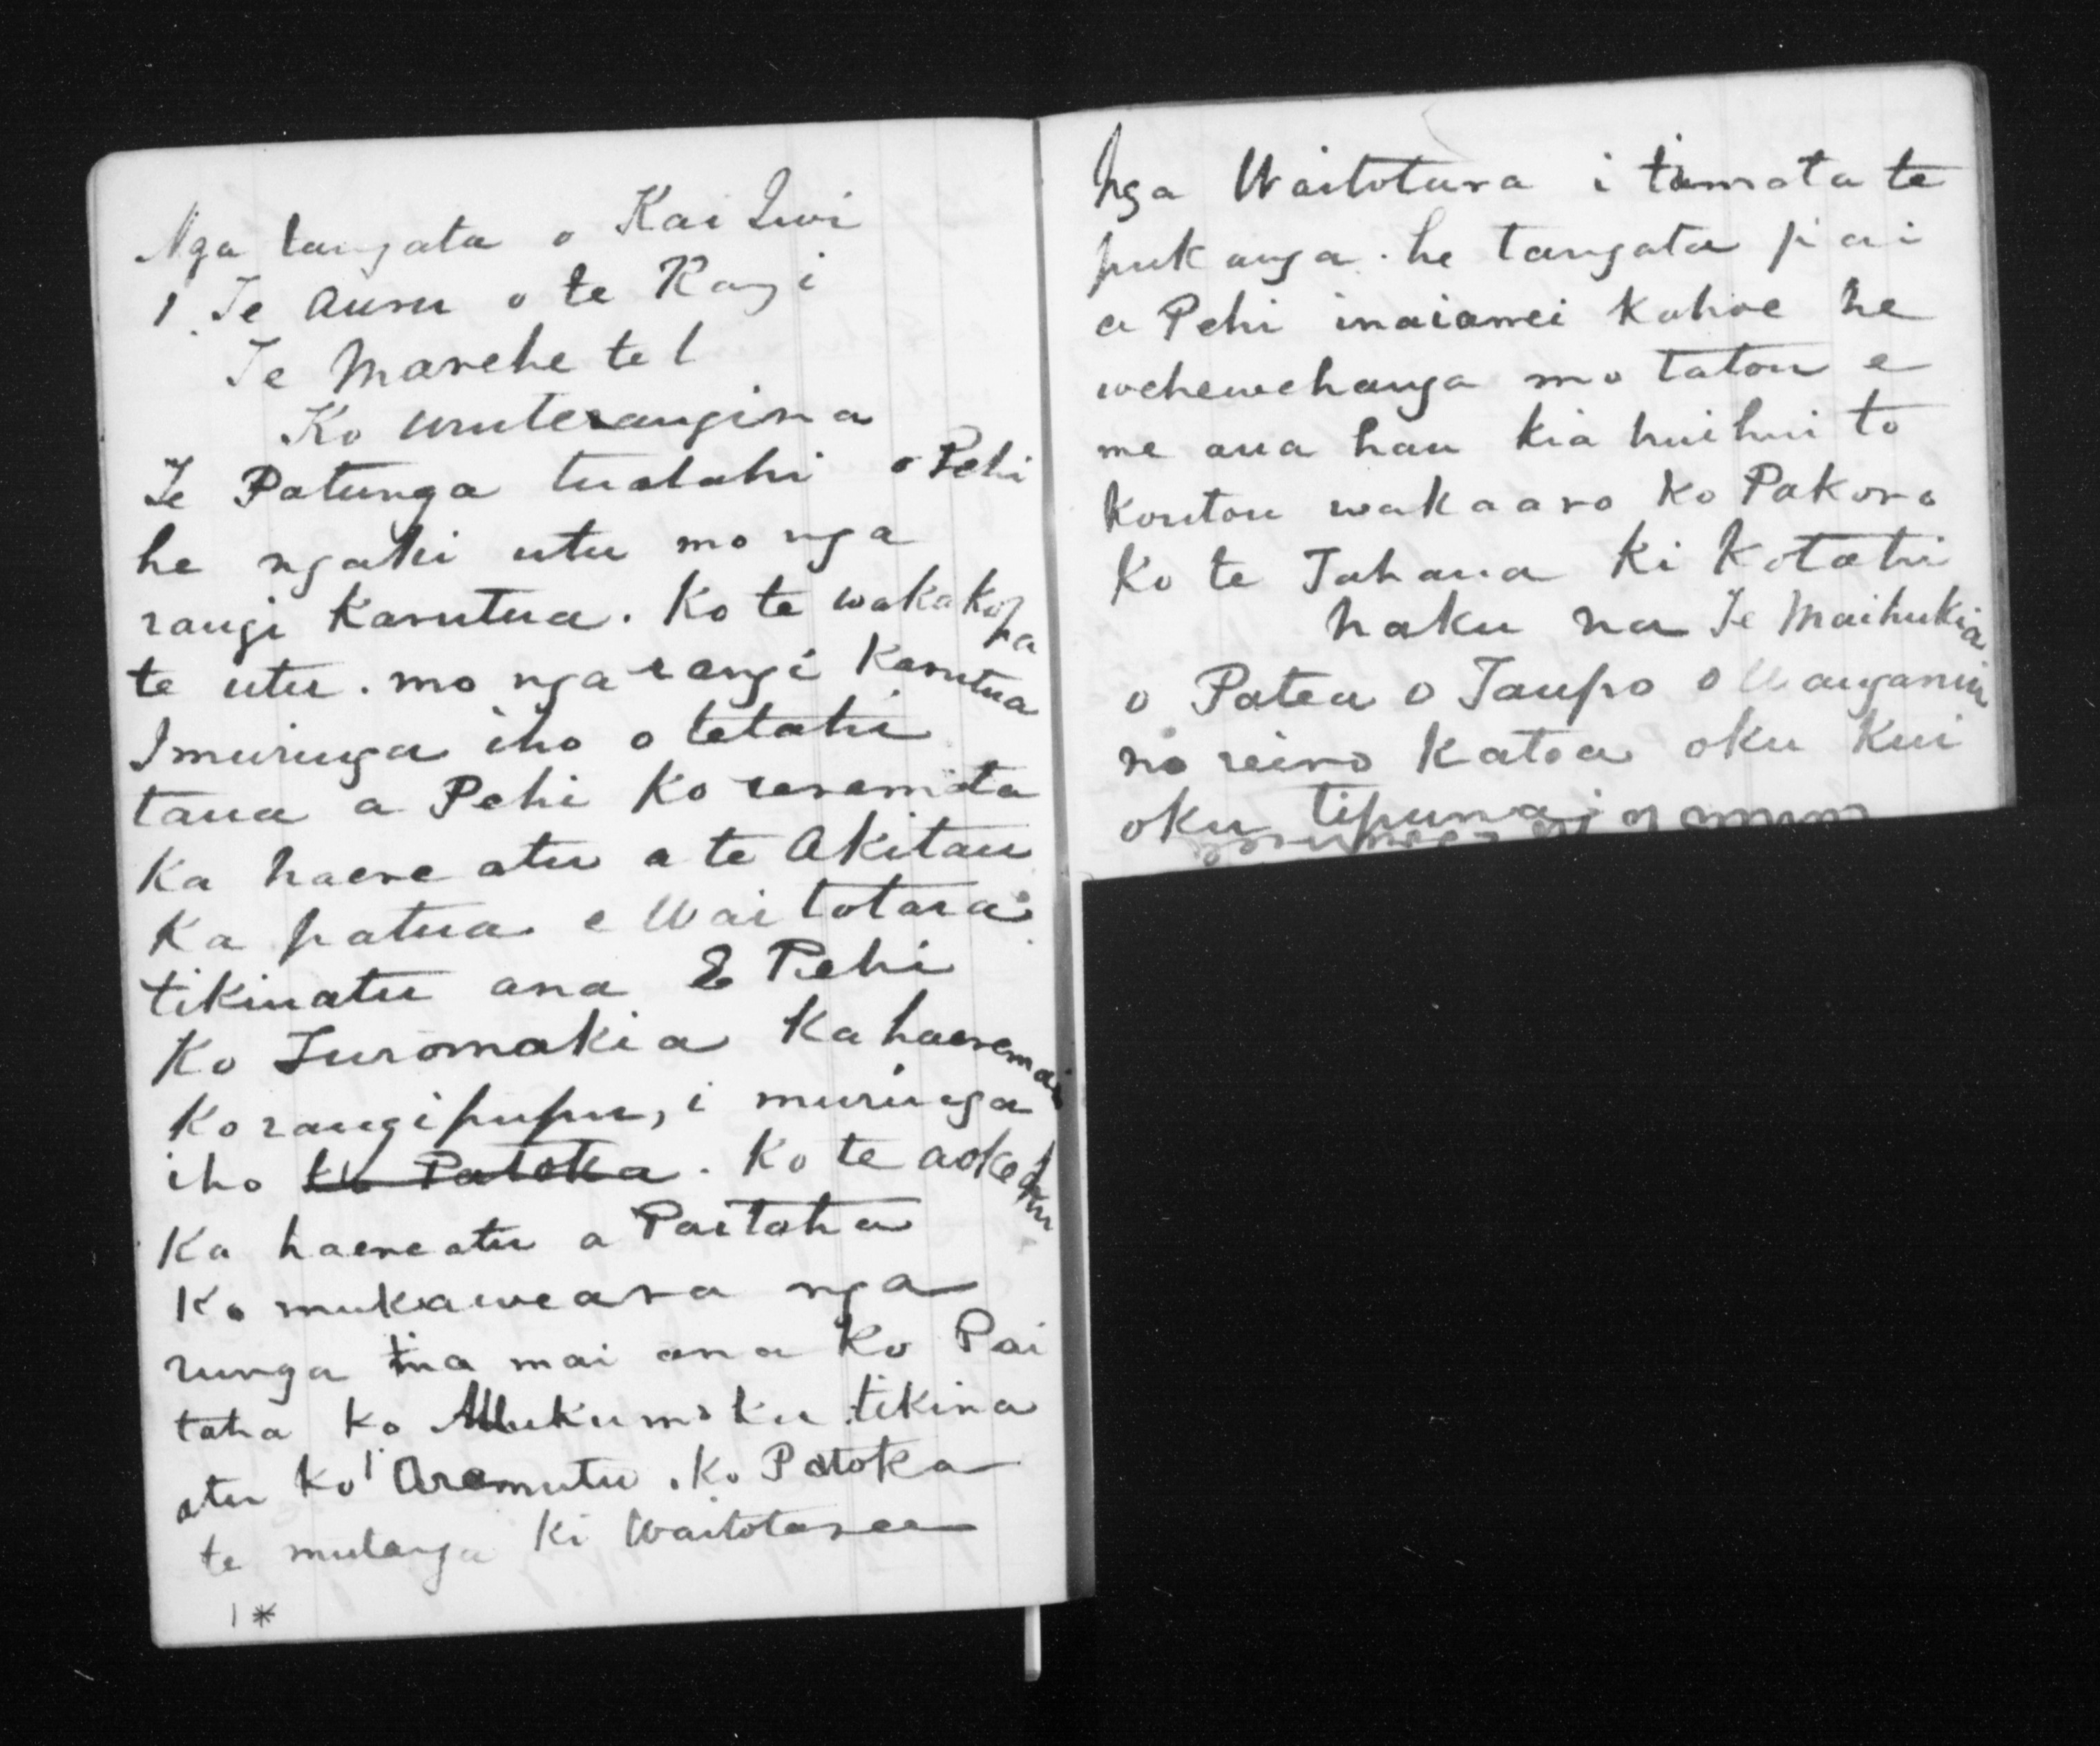 Nga tangata o Kai Iwi
1 Te Auru o te Rangi
Te Marehe te 1
Ko Uruterangina
Te Patunga tuatahi o Pehi
he ngaki utu mo nga
rangi Karutua. Ko te wakakopa
te utu. mo nga rangi Karutua
Imuringa iho o tetahi
taua a Pehi Ko reremata
Ka haere atu a te Akitau
Ka patua e Wai totara
tikinatu ana E Pehi
Ko Turomakia Ka haeremai
Ko rangipupu, i muringa
iho Ko Patoka. Ko te aokehu
Ka haereatu a Paitaha
Ko mukaweara nga
runga tia mai ana Ko Pai
taha Ko Mukumoku tikina
atu Ko Aramutu. Ko Patoka
te mutanga Ki Waitotara
1 *
Nga Waitotara i timata te
pukanga. he tangata pai
a Pehi inaianei Kahoe he
wehewehanga mo tatou e
me aua hau kia huihui to
koutou wakaaro ko Pakoro
Ko te Tahana Ki Kotahi
naku na Te Maihukia
o Patea o Taupo o Wanganui
no reira Katoa oku Kui
oku tipuna